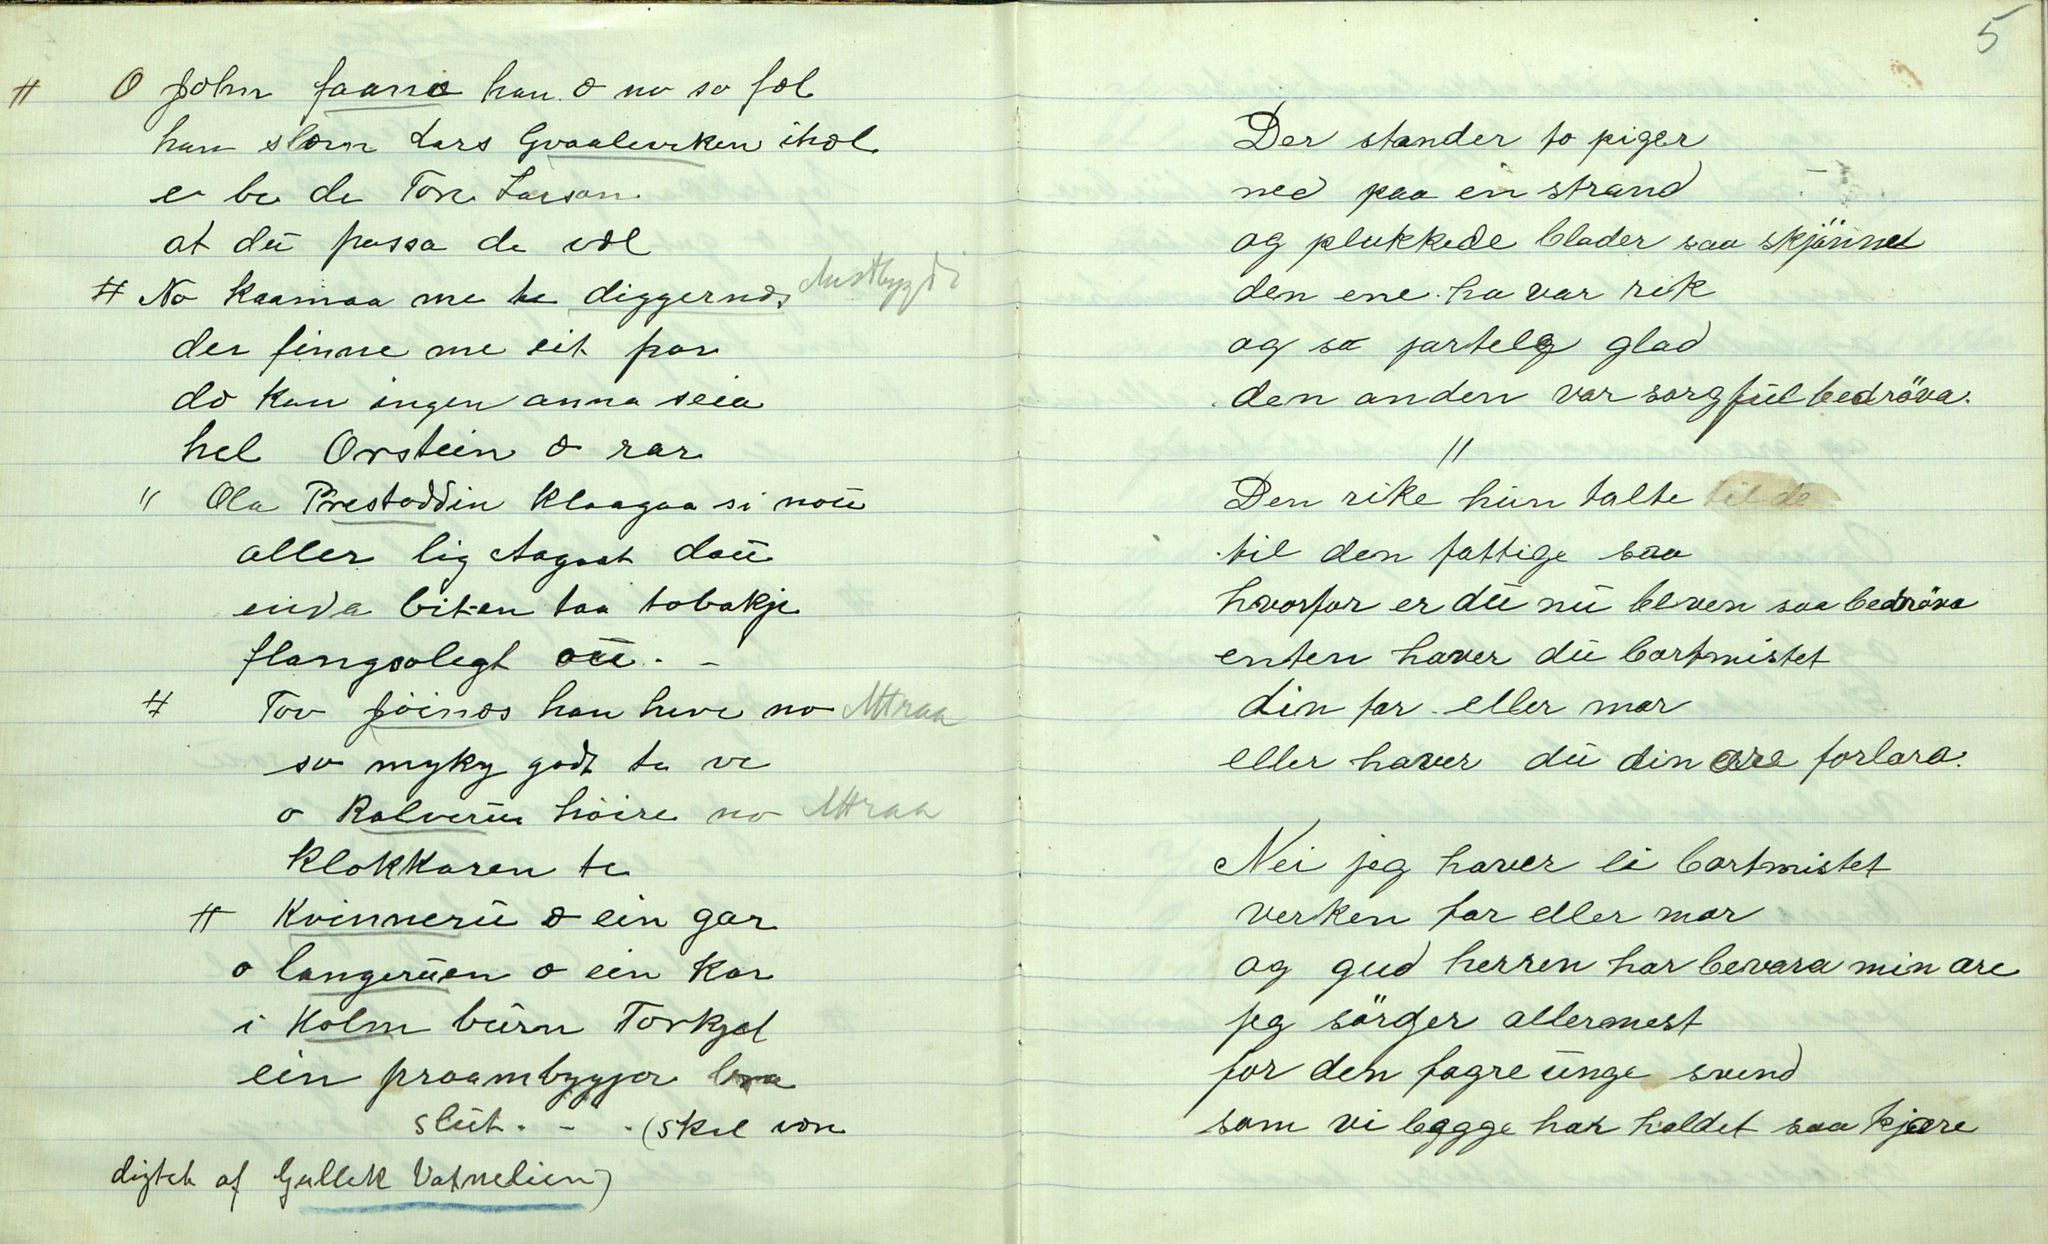 # O John faans han æ no so fæl
han slær Lars Gvaaleviken ihæl
e be de Tore Larson
at dú passa de væl
# No kaamaa me te diggernæs Austbygdi
der finne me eit par
dæ kan ingen anna seia
hel Orstein æ rar
" Ola Prestøddin klaagaa si noú
aller lig August doú
enda biten taa tobakje
flangsolegt oú. -
# Tov Jóinæs han heve no Attraa
so myky godt te ve
o Kalverú höire no Attraa
klokkaren te
# Kvinnerú æ ein gar
o langerúen o ein kar
i Holm búrn Torkjel
ein praambyggjer bra
slút. - . (skal være
digtet af Gullek Vatnelien)
5
Der stander to piger
ned paa en strand
og plukkede blader saa skjönned
den ene ha var rik
og sa jartelg glad
den anden var sorgfúl bedröva.
"
Den rike hún talte til de
til den fattige saa
hvorfor er dú nú bleven saa bedröva
enten haver dú bortmistet
din far eller mor
eller haver dú din ære forlora.
Nei jeg haver ei bortmistet
verken far eller mor
og gud herren har bevara min ære
jeg sörger allermest
for den fagre únge svend
som vi begge har holdet saa kjære